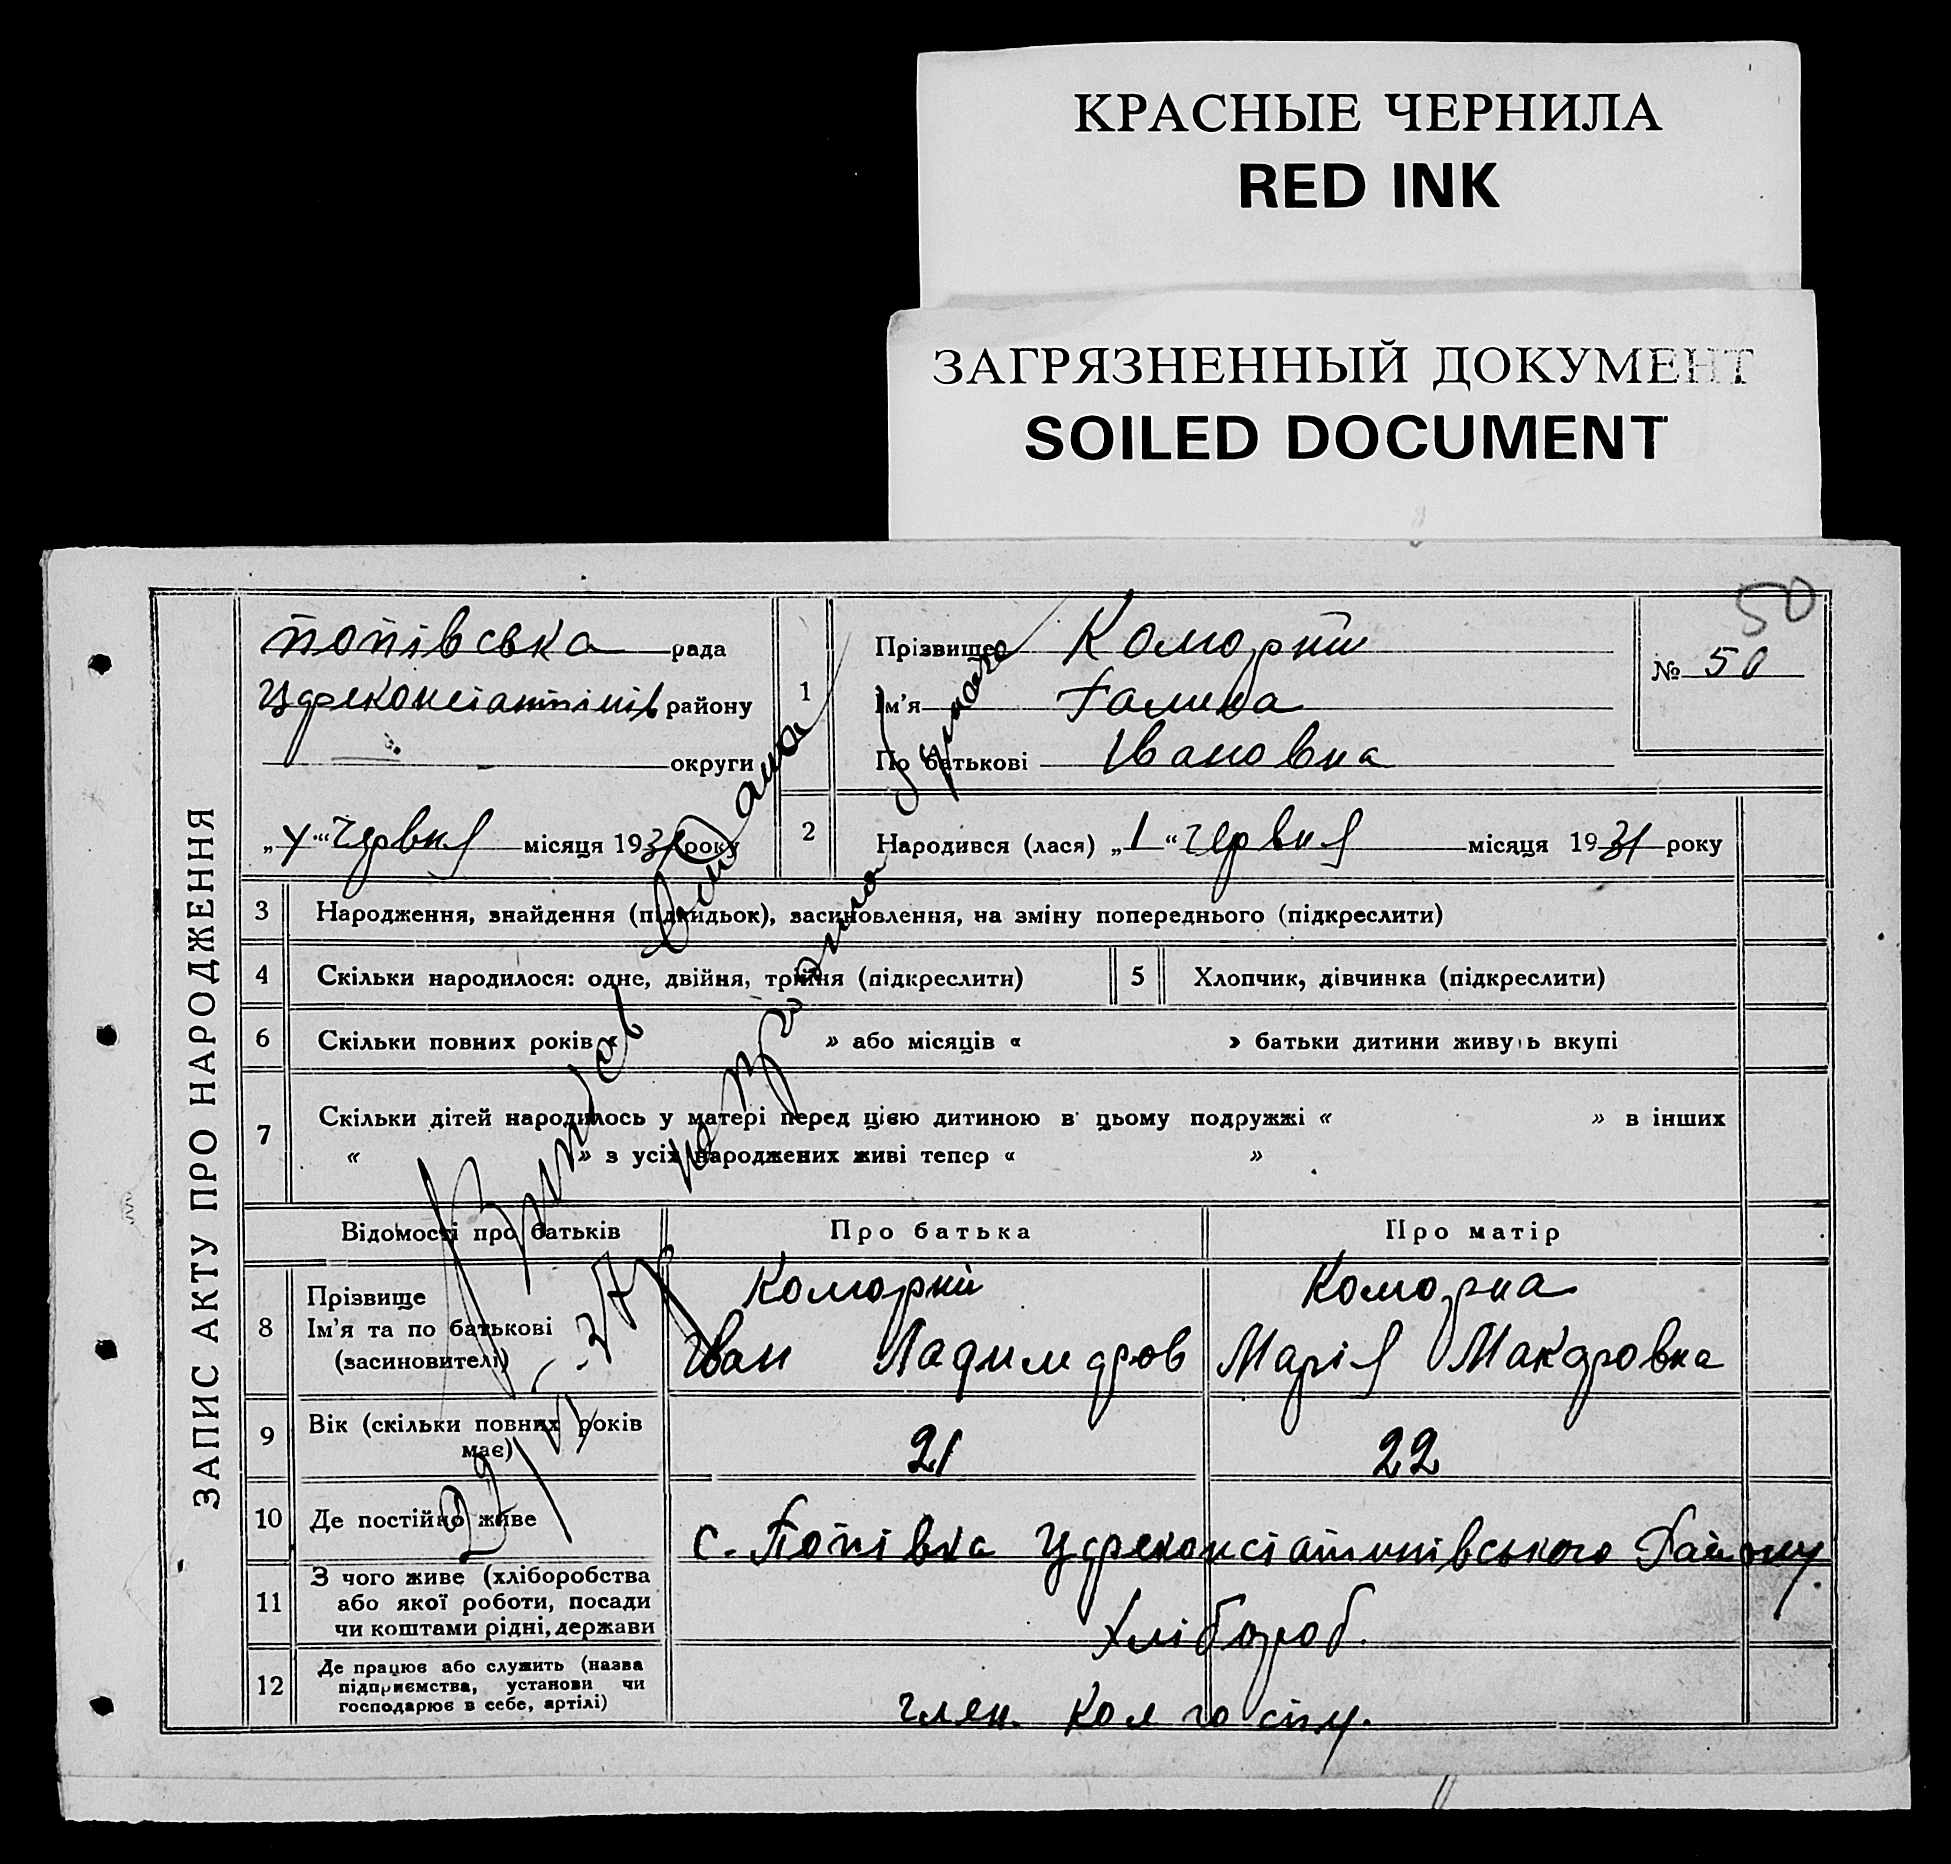 КРАСНЫЕ ЧЕРНИЛА
RED INK
ЗАГРЯЗНЕННЫЙ ДОКУМЕНТ
SOILED DOCUMENT
50
ЗАПИС АКТУ ПРО НАРОДЖЕННЯ
Попівська рада
району
округи
„4“ Червня місяця 1931 року
1
Прізвище Коморний
Ім'я Галина
По батькові Івановна
№ 50
2
Народився (лася) „1“ Червня місяця 1931 року
3 Народження, знайдення (підкидьок), засиновлення, на зміну попереднього (підкреслити)
4 Скільки народилося: одне, двійня, трійня (підкреслити) 5 Хлопчик, дівчинка (підкреслити)
6 Скільки повних років « » або місяців « » батьки дитини живуть вкупі
7 Скільки дітей народилось у матері перед цією дитиною в цьому подружжі « » в інших
« » з усіх народжених живі тепер « »
Відомості про батьків Про батька Про матір
8 Прізвище
Ім'я та по батькові
(засиновителі)
Коморний
Іван Ладимиров
Коморна
Марія Макаровна
9 Вік (скільки повних років
має)
21 22
10 Де постійно живе
с. Попівка Району
11 З чого живе (хліборобства
або якої роботи, посади
чи коштами рідні, держави
Хлібороб.
12 Де працює або служить (назва
підприємства, установи чи
господарює в себе, артілі)
член. Колгоспу.